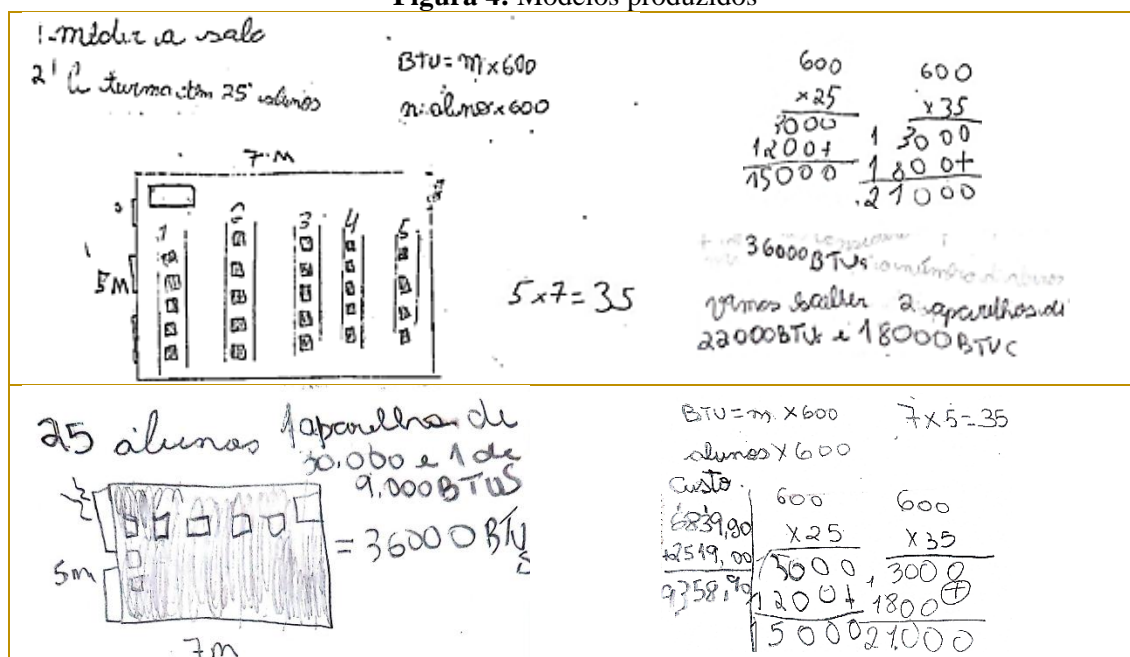 Figura 4: Modelos produzidos
1-medir a sala
2' A turma tem 25 alunos
BTU = m x 600
n: alunos x 600
7 M
5 M
1 2 3 4 5
5 x 7 = 35
600
x 25
3000
1200+
15000
600
x 35
1 3000
1800+
21000
36000 BTUs
vamos 2 aparelhos di
22000 BTUs e 18000 BTUC
25 alunos 1 aparelho de
30.000 e 1 de
9.000 BTUS
= 36000 BTUS
5m
7m
BTU = m x 600
7 x 5 = 35
alunos x 600
Custo
6839,90
+2519,00
9358,90
600
x 25
3000
1200+
15000
600
x 35
1 3000
1800+
21.000